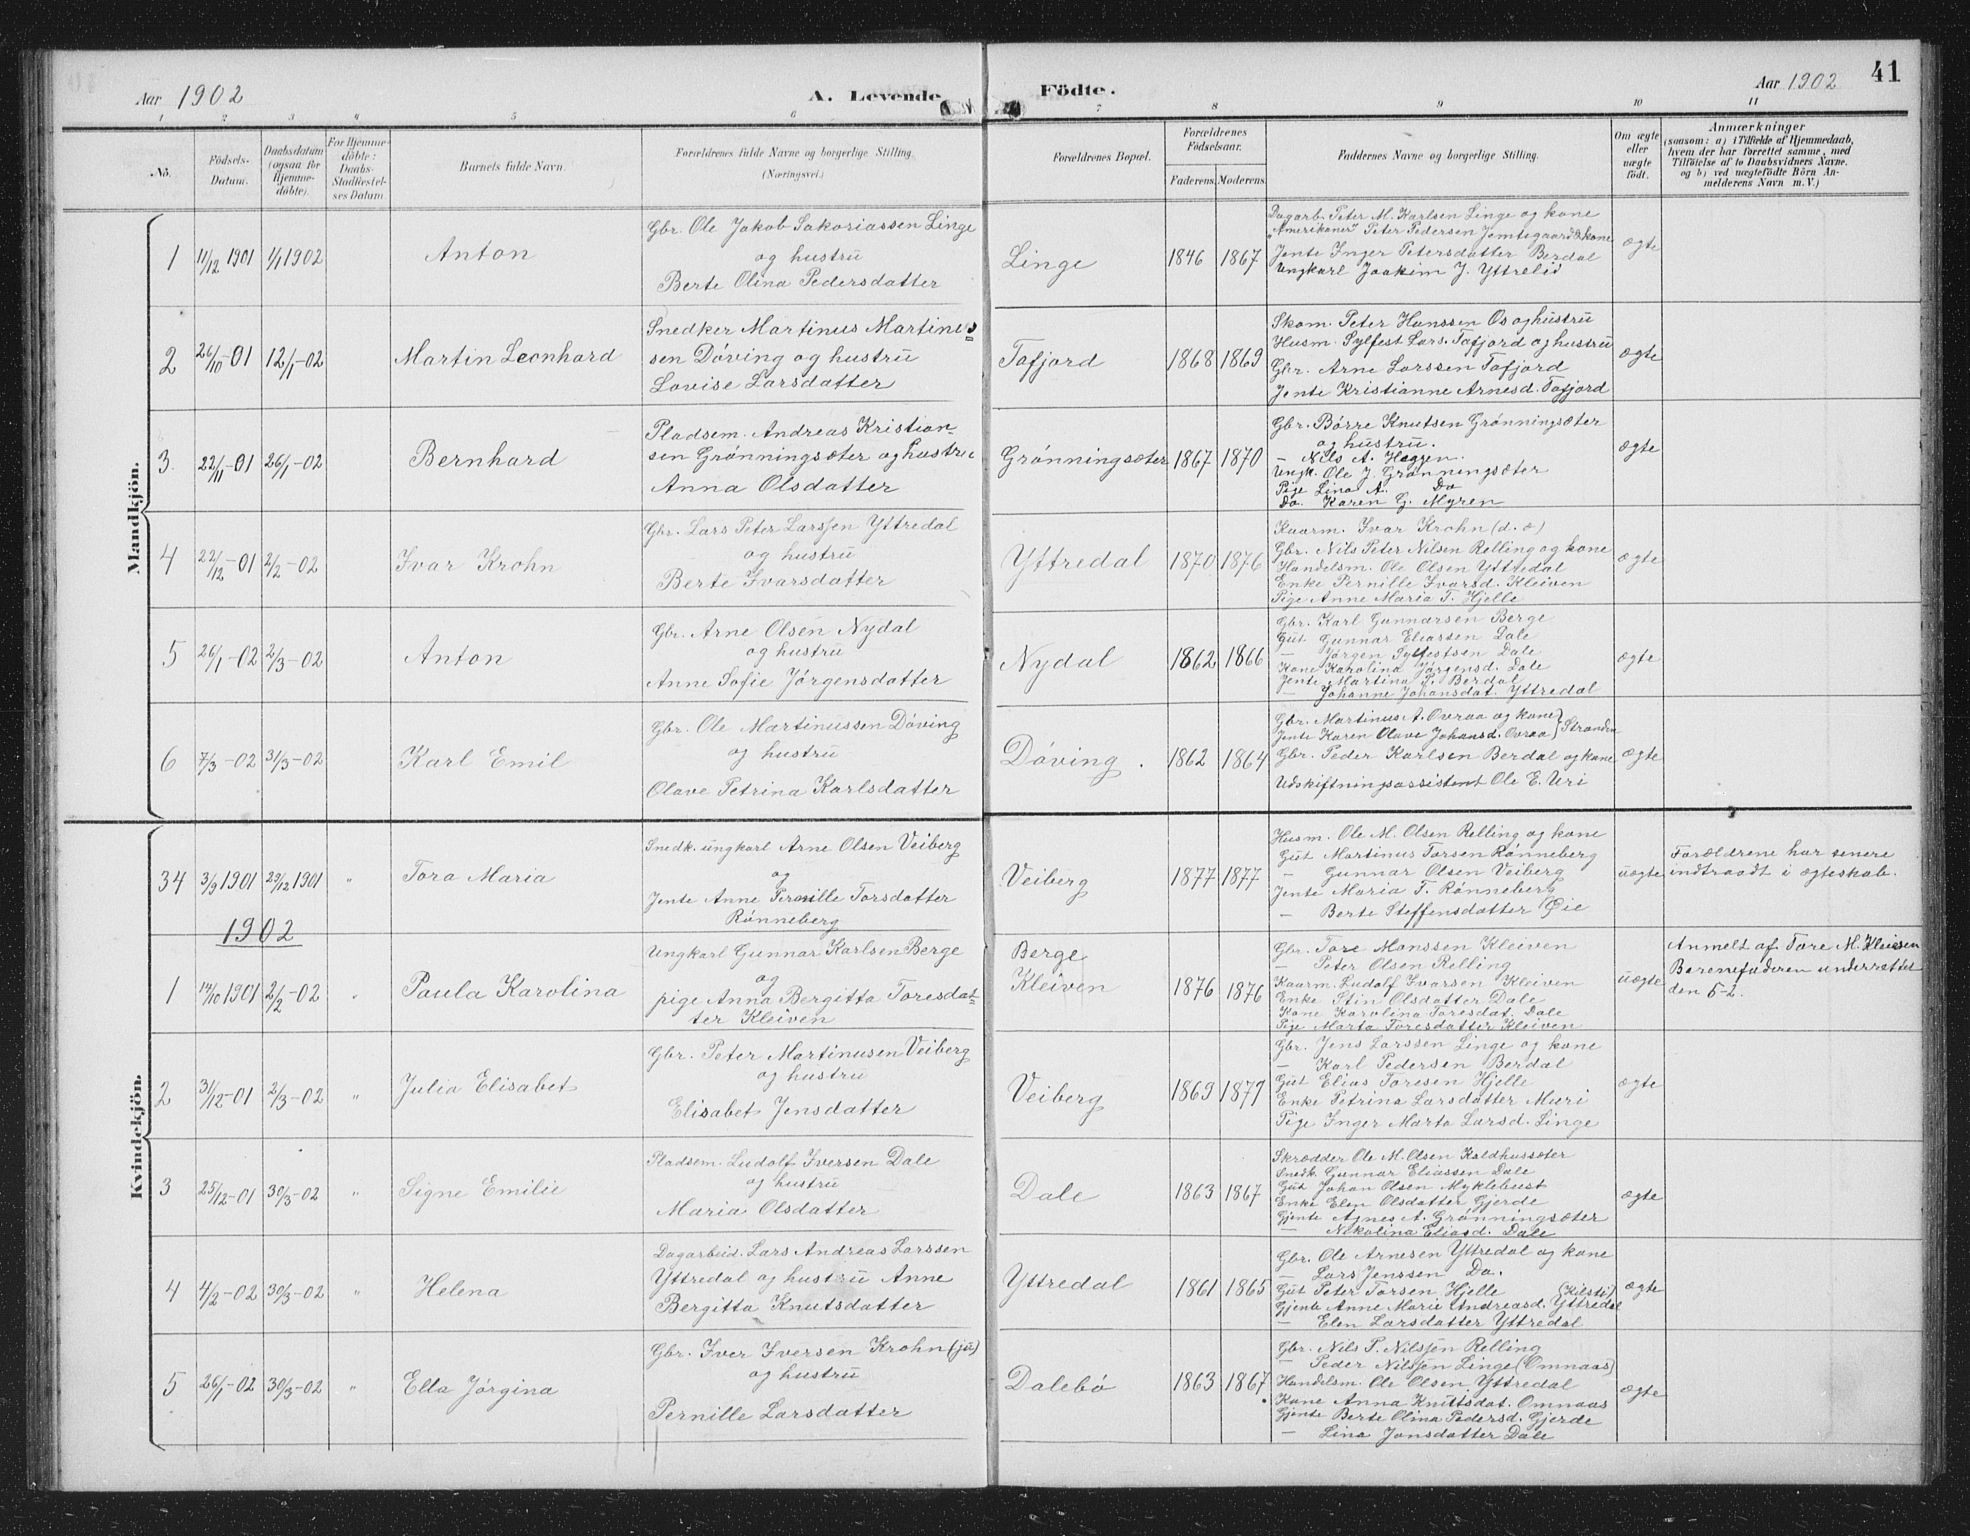 Aar 1902
A. Levende
Födte.
Aar 1902
41
1 2 3 4 5 6 7 8 9 10 11
No.
Födsels-
Datum.
Daabsdatum
(ogsaa for
Hjemme-
döbte).
For Hjemme-
döbte:
Daabs-
Stadfæstel-
ses Datum
Barnets fulde Navn.
Forældrenes fulde Navne og borgerlige Stilling.
(Næringsvei.)
Forældrenes Bopæl.
Forældrenes
Födselsaar.
Faderens. Moderens.
Faddernes Navne og borgerlige Stilling.
Om ægte
eller
uægte
födt.
Anmærkninger
(saasom: a) i Tilfælde af Hjemmedaab,
hvem der har forrettet samme, med
Tilföielse af to Daabsvidners Navne.
og b) ved uægtefödte Börn An-
melderens Navn m. V.)
Mandkjön.
1 11/12 1901 1/1 1902 Anton
Gbr. Ole Jakob Sakariassen Linge
og hustru
Berte Olina Pedersdatter
Linge 1846 1867
Dagarb. Peter M. Karlsen Linge og kone
"Amerikaner" Peter Pedersen Jemtegaard & kone
Jente Inger Petersdatter Berdal
Ungkarl Joakim J. Yttrelid
ægte
2 26/10-01 12/1-02 Martin Leonhard
Snedker Martinus Martines
sen Döving og hustru
Lovise Larsdatter
Tafjord 1868 1869
Skom. Peter Hanssen Os og hustru
Husm. Sylfest Lars. Tafjord og hustru
Gbr. Arne Larssen Tafjord
Jente Kristianne Arnesd. Tafjord
ægte
3. 22/11-01 26/1-02 Bernhard
Pladsem. Andreas Kristian-
sen Grönningsæter og hustru
Anna Olsdatter
Grönningsæter 1867 1870
Gbr. Börre Knutsen Grönningsæter
og hustru.
- Nils A. Heggen.
Ungk. Ole J. Grönningsæter
Pige Lina A. Do
Do. Karen G. Myren
ægte
4 22/12-01 2/2-02 Ivar Krohn
Gbr. Lars Peter Larssen Yttredal
og hustru
Berte Ivarsdatter
Yttredal 1870 1876
Kaarm. Ivar Krohn (d. æ)
Gbr. Nils Peter Nilsen Relling og kone
Handelsm. Ole Olsen Yttredal
Enke Pernille Ivarsd. Kleiven
Pige Anne Maria T. Hjelle
ægte
5 26/1-02 2/3-02 Anton
Gbr. Arne Olsen Nydal
og hustru
Anne Sofie Jörgensdatter
Nydal 1862 1866
Gbr. Karl Gunnarsen Berge
Gut Gunnar Eliassen Dale
- Jörgen Sylfestsen Dale
Kone Karolina Jörgensd. Dale
Jente Martina P. Berdal
- Johanne Johansdat. Yttredal
ægte
6 7/3-02 31/3-02 Karl Emil
Gbr. Ole Martinussen Döving
og hustru
Olave Petrina Karlsdatter
Döving. 1862 1864
Gbr. Martinus A. Ovraa og kone
Jente Karen Olave Johansd. Ovraa } Stranden
Gbr. Peder Karlsen Berdal og kone
Udskiftningsassistent Ole E. Uri
ægte
Kvindekjön.
34 3/9 1901 29/12 1901 " Tora Maria
Snedk. ungkarl Arne Olsen Veiberg
og
Jente Anne Pernille Torsdatter
Rönneberg
Veiberg 1877 1877
Husm. Ole M. Olsen Relling og kone
Gut Martinus Torsen Rönneberg
- Gunnar Olsen Veiberg
Jente Maria T. Rönneberg
- Berte Steffensdatter Øie
uægte
Forældrene har senere
indtraadt i ægteskab.
1902
1 14/10 1901 2/2-02 " Paula Karolina
Ungkarl Gunnar Karlsen Berge
og
pige Anna Bergitta Toresdat-
ter Kleiven
Berge
Kleiven
1876 1876
Gbr. Tore Monssen Kleiven
- Peter Olsen Relling
Kaarm. Ludolf Ivarsen Kleiven
Enke Stin Olsdatter Dale
Kone Karolina Toresdat. Dale
Pige Marta Toresdatter Kleiven
uægte
Anmelt af Tore M. Kleiven
Barnefaderen underrettet
den 5-2.
2 31/12-01 2/3-02 " Julia Elisabet
Gbr. Peter Martinusen Veiberg
og hustru
Elisabet Jensdatter
Veiberg 1869 1877
Gbr. Jens Larssen Linge og kone
- Karl Pedersen Berdal
Gut Elias Toresen Hjelle
Enke Petrina Larsdatter Muri
Pige Inger Marta Larsd. Linge
ægte
3 25/12-01 30/3-02 " Signe Emilie
Pladsem. Ludolf Iversen Dale
og hustru
Maria Olsdatter
Dale 1863 1867
Skrædder Ole M. Olsen Kaldhussæter
Snedk. Gunnar Eliassen Dale
Gut Johan Olsen Myklebust
Enke Elen Olsdatter Gjerde
Gjente Agnes A. Grönningsæter
- Nikolina Eliasd. Dale
ægte
4 4/2-02 30/3-02 " Helena
Dagarbeid. Lars Andreas Larssen
Yttredal og hustru Anne
Bergitta Knutsdatter
Yttredal 1861 1865
Gbr. Ole Arnesen Yttredal og kone
- Lars Jenssen Do.
Gut Peter Torsen Hjelle
Gjente Anne Marie Andreasd. Yttredal
- Elen Larsdatter Yttredal
ægte
5 26/1-02 30/3-02 " Ella Jörgina
Gbr. Iver Iversen Krohn (ju)
og hustru
Pernille Larsdatter
Dalebö 1863 1867
Gbr. Nils P. Nilssen Relling
- Peder Nilssen Linge (Omnaas)
Handelsm. Ole Olsen Yttredal
Kone Anna Knuttsdat. Omnaas
Gjente Berte Olina Pedersd. Gjerde
- Lina Jonsdatter Dale
ægte